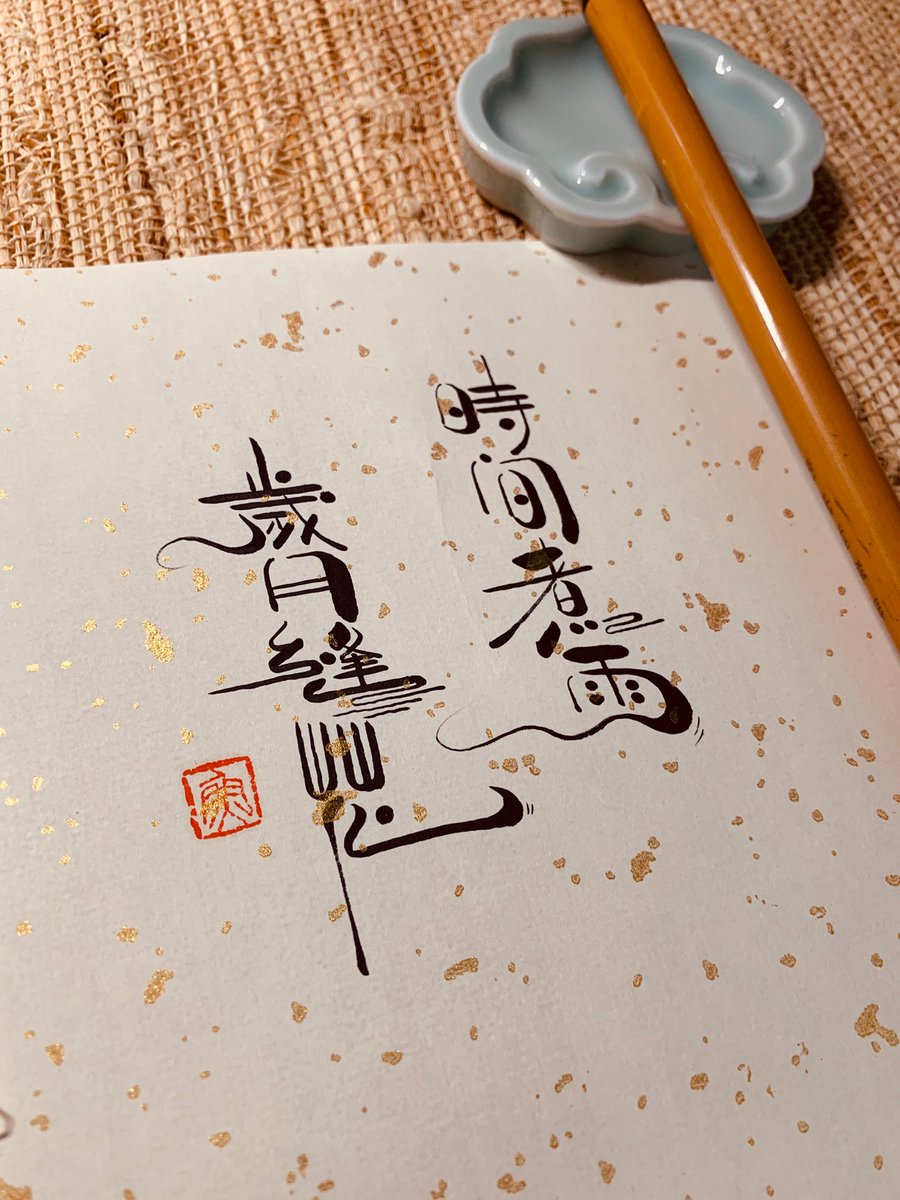 時間煮雨
歲月縫花